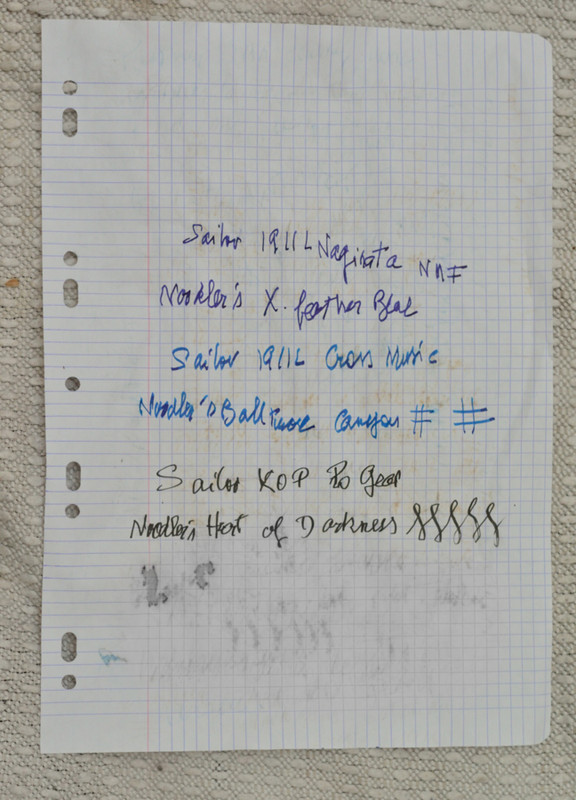 Sailor 1911L Naginata NMF
Noodler's X-feather Blue
Sailor 1911L Cross Music
Noodler's Baltimore Canyon # #
Sailor KOP Pro Gear
Noodler's Heart of Darkness